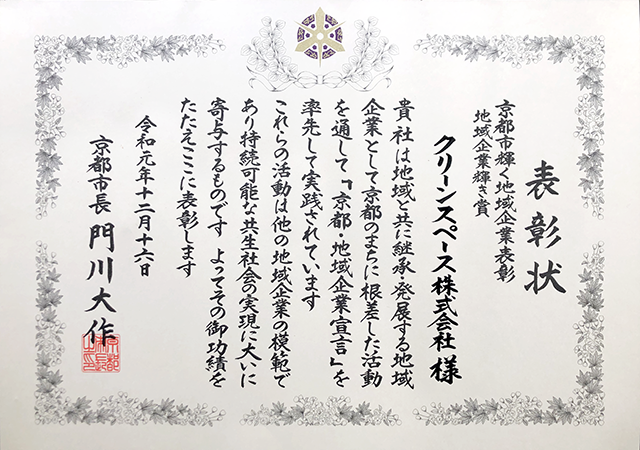 表彰状
京都市輝く地域企業表彰
地域企業輝き賞
クリーンスペース株式会社 様
貴社は地域と共に継承・発展する地域
企業として京都のまちに根差した活動
を通して「京都・地域企業宣言」を
率先して実践されています
これらの活動は他の地域企業の模範で
あり持続可能な共生社会の実現に大いに
寄与するものです よってその御功績を
たたえここに表彰します
令和元年十二月十六日
京都市長 門川大作